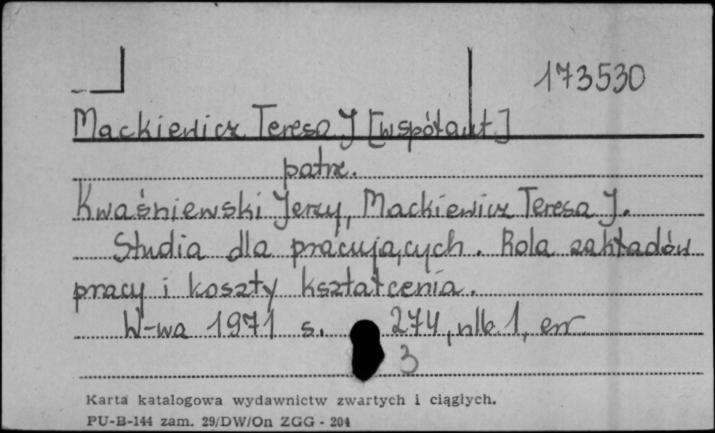 173530
Mackiewicz Teresa J [współaut.]
patrz.
Kwaśniewski Jerzy, Mackiewicz Teresa J.
Studia dla pracujących. Rola zakładów
pracy i koszty kształcenia.
W-wa 1971 s. 274, nlb. 1, err
3
Karta katalogowa wydawnictw zwartych i ciągłych.
PU-B-144 zam. 29/DW/On ZGG - 204